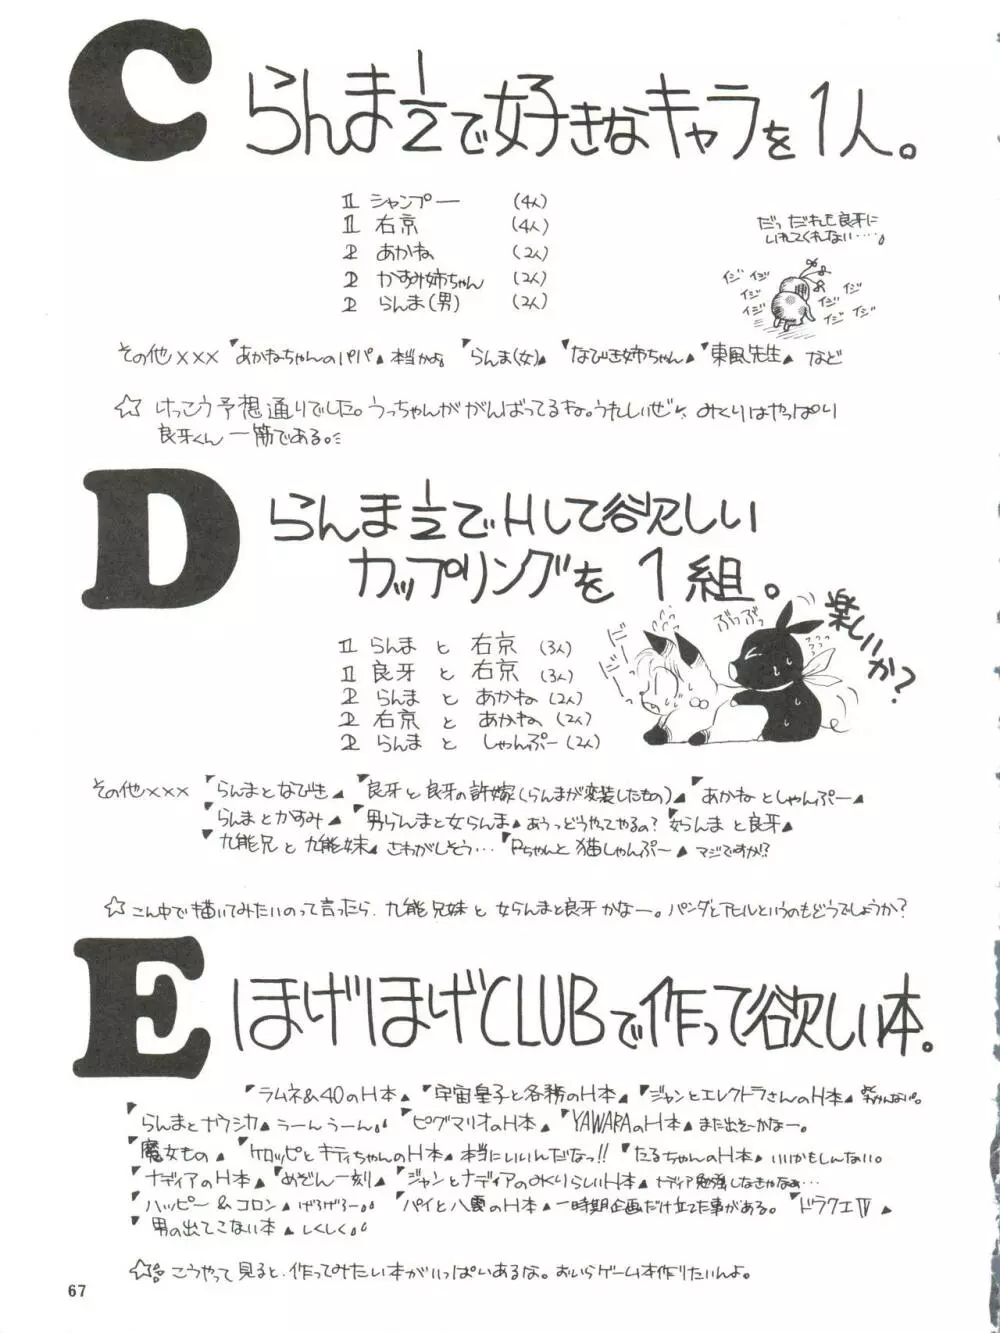 C
らんま1/2で好きなキャラを1人。
1 シャンプー (4人)
1 右京 (4人)
2 あかね (2人)
2 かすみ姉ちゃん (2人)
2 らんま(男) (2人)
だっ だれも良牙に
いれてくれない……。
イジ イジ イジ イジ イジ イジ イジ イジ
その他××× 「あかねちゃんのパパ」本当かよ 「らんま(女)」 「なびき姉ちゃん」 「東風先生」 など
☆ けっこう予想通りでした。うっちゃんががんばってるね。うれしいぜ みくりはやっぱり
良牙くん一筋である。
D
らんま1/2でHして欲しい
カップリングを1組。
1 らんま と 右京 (3人)
1 良牙 と 右京 (3人)
2 らんま と あかね (2人)
2 右京 と あかね (2人)
2 らんま と しゃんぷー (2人)
ぶっぶっ
楽しいか?
その他××× 「らんまとなびき」 「良牙と良牙の許嫁(らんまが変装したもの)」 「あかねとしゃんぷー」
「らんまとかすみ」 「男らんまと女らんま」あうっどうやってやるの? 女らんまと良牙」
「九能兄と九能妹」さわがしそう… 「Pちゃんと猫しゃんぷー」マジですか!?
☆ こん中で描いてみたいのって言ったら、九能兄妹と女らんまと良牙かなー。パンダとアヒルというのもどうでしょうか?
E
ほげほげCLUBで作って欲しい本。
「ラムネ&40のH本」 「宇宙皇子と各務のH本」 「ジャンとエレクトラさんのH本」
「らんまとナウシカ」うーんうーん。 「ピグマリオのH本」 「YAWARAのH本」また出そーかなー。
「魔女もの」 「ケロッピとキティちゃんのH本」本当にいいんだなっ!! 「たるちゃんのH本」いいかもしんない。
「ナディアのH本」 「めぞん一刻」 「ジャンとナディアのみくりらしいH本」ナディア勉強しなきゃなぁ…
「ハッピー&コロン」げろげろー。 「パイと八雲のH本」一時期企画だけ立てた事がある。 「ドラクエⅣ」
「男の出てこない本」しくしく。
☆ こうやって見ると、作ってみたい本がいっぱいあるな。おいらゲーム本作りたいんよ。
67